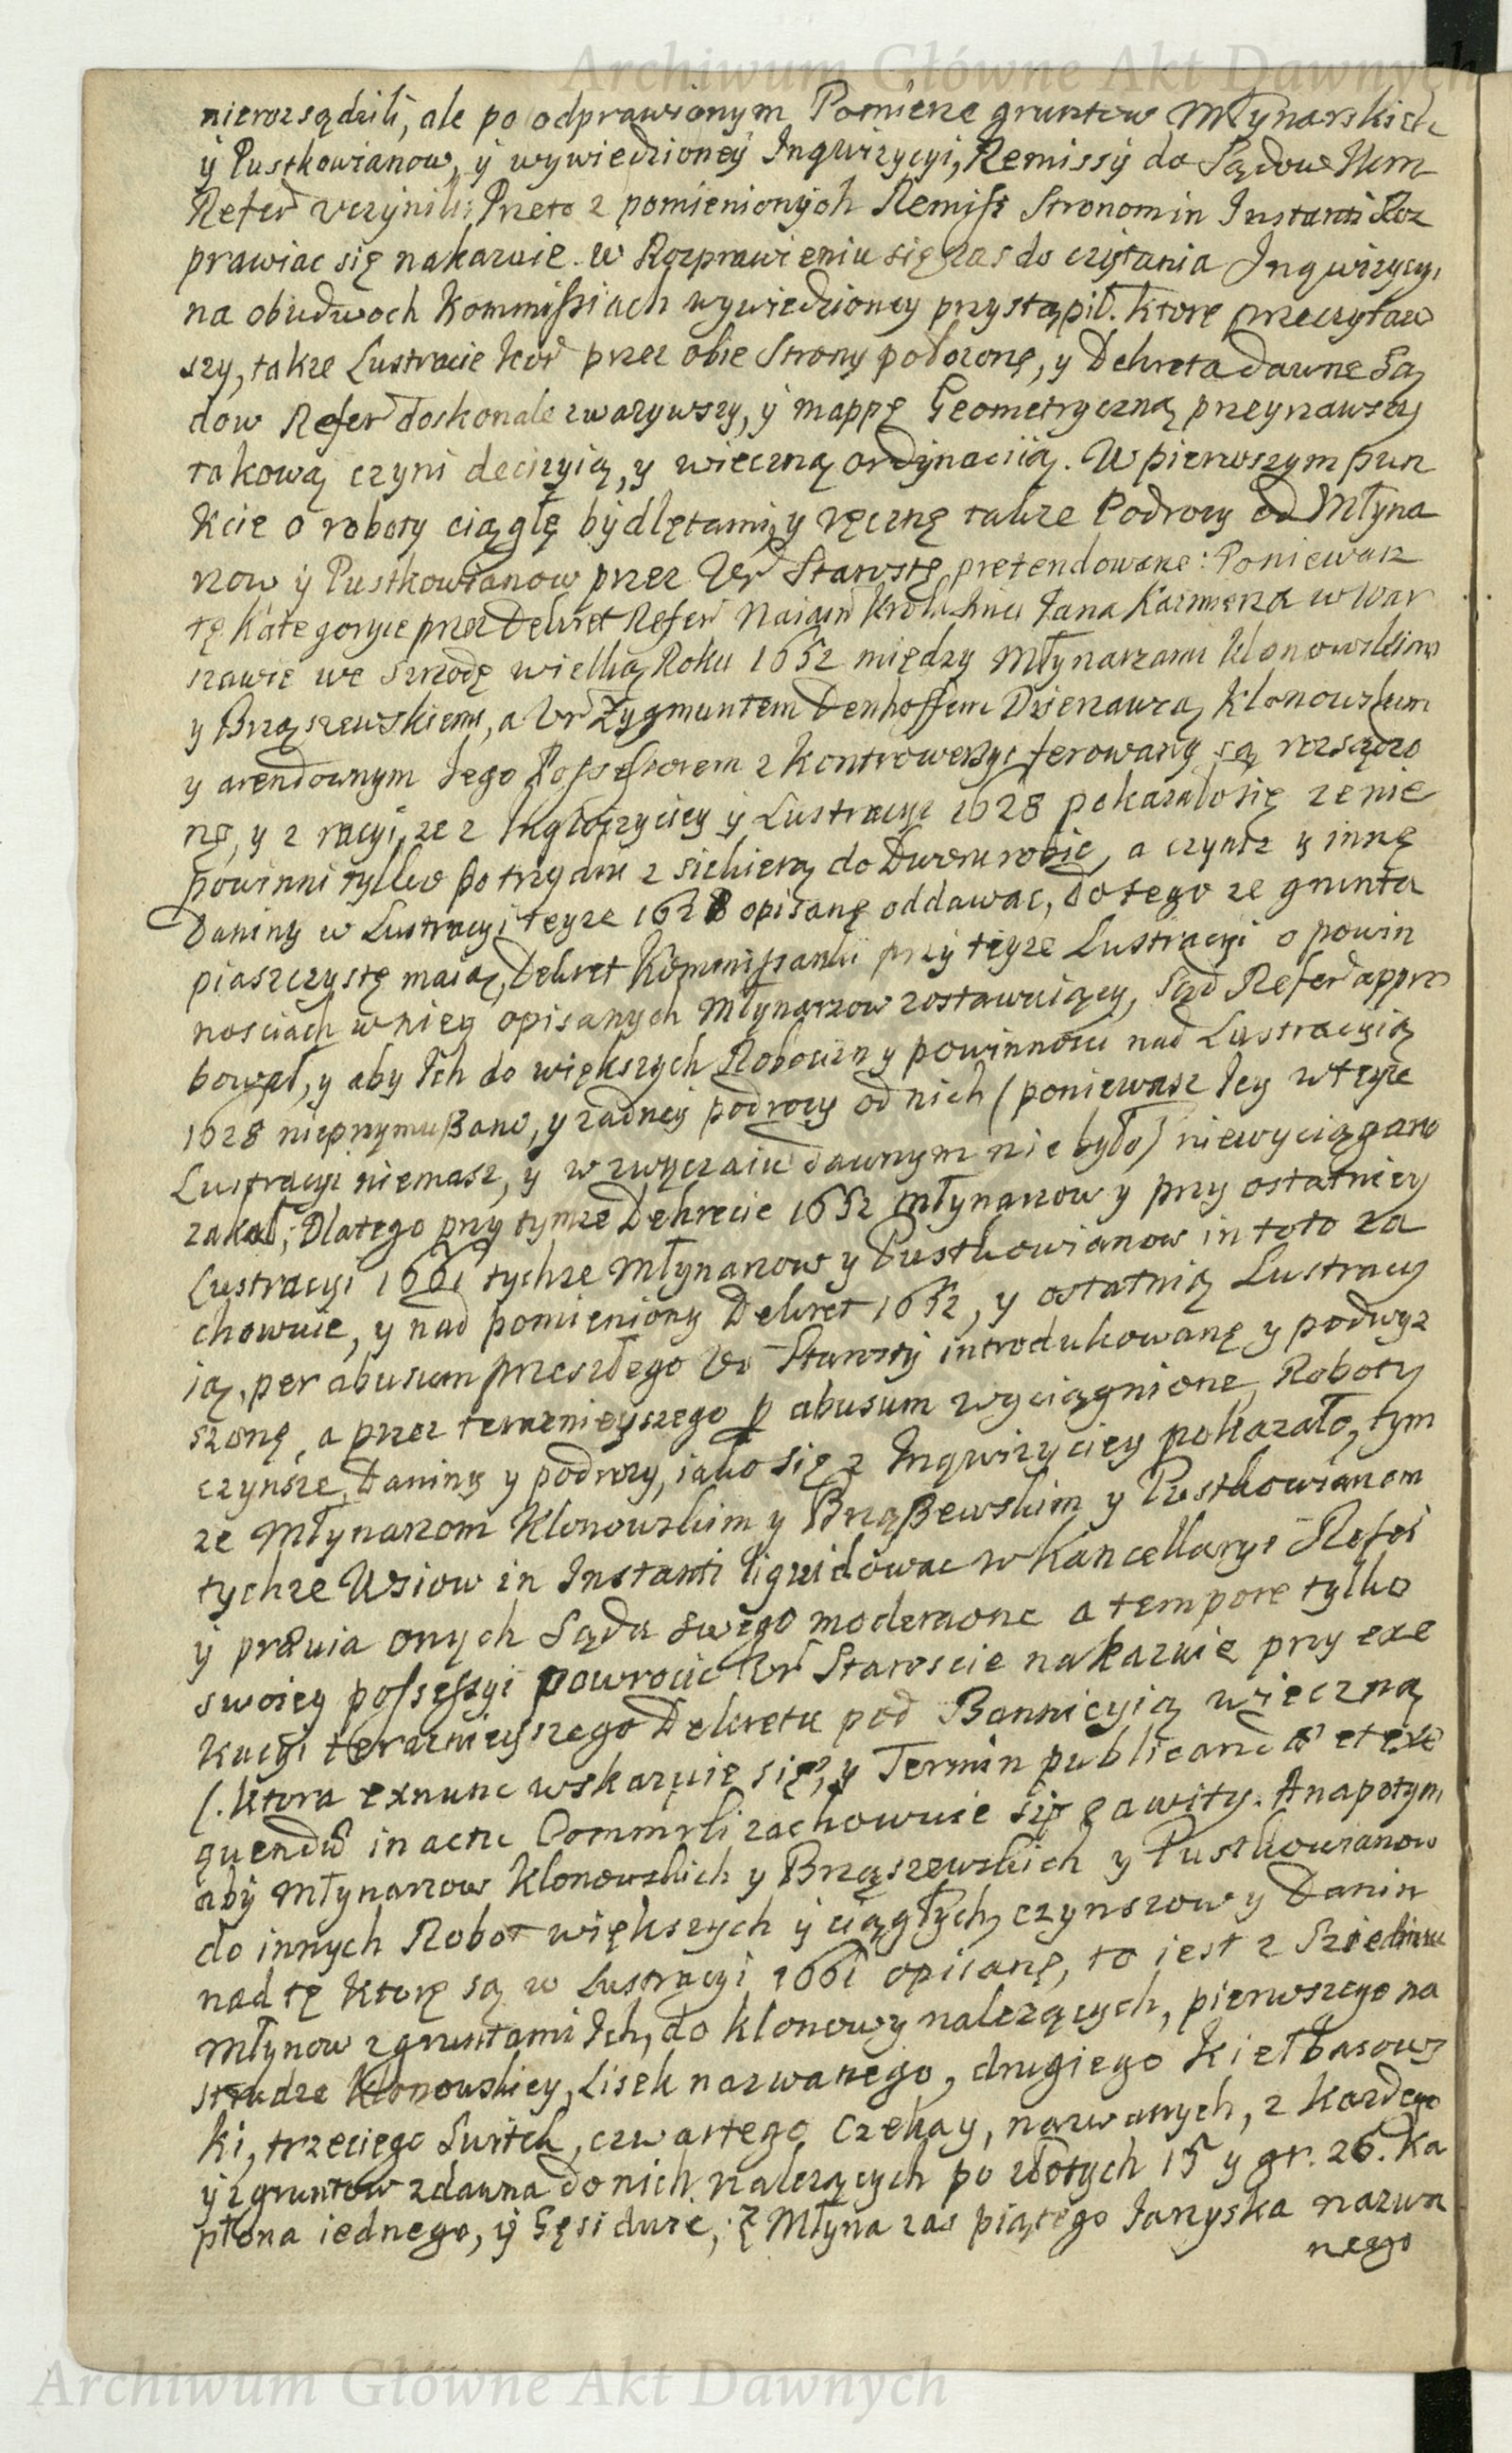 Archiwum Główne Akt Dawnych
nierozsądzili, ale po odprawionym Pomierze gruntow Młynarskich
ÿ Pustkowianow, ÿ wywiedzioneÿ Ingwizycyi, Remissÿ do Sądow Nrm
Refer vczynili; Przeto z pomienionych Remiss Stronom in Instanti Roz
prawiac się nakazuie. w Rozprawieniu się zas do czÿtania Inqwizycyi
na obudwoch Kommissiach wywiedzioney przystąpił. ktorę przeczytaw
szy, takze Lustracie Kor przez obie Strony położonę, y Dekreta dawne Są
dow Refer doskonale zwazywszy, ÿ mappę Geometryczną przeyzrawszy
takową czyni decizyią, y wieczną ordÿnaciią. W pierwszym pun
kcie o roboty ciągłę bydlętami, y ręcznę takze Podrozy od Młyna
rzow ÿ Pustkowianow przez Vr Starostę pretendowane: Poniewaz
tę Kategorye przez Dekret Refer Naiasn Krola Jmci Jana Kazimierza w War
szawie we srzodę wielką Roku 1652 między Młynarzami Klonowskiemi
y Brząszewskiemi, a Vr Zygmuntem Denhoffem Dzierzawcą Klonowskim
y arendownym Jego Possessorem z kontrowersyi ferowany są rozsądzo
nę, y z racyi, ze z Inqwizyciey ÿ Lustracyi 1628 pokazało się ze nie
powinni tylko po trzy dni z siekierą do Dworu robic, a czynsz y innę
Daniny w Lustracyi teyze 1628 opisanę oddawac, do tego ze grunta
piaszczystę maią, Dekret Kommissarski przÿ teyze Lustracyi o powin
nosciach w niey opisanych Młynarzow zostawuiący, Sąd Refer appro
bował, y aby Ich do większych Robocizn y powinnosci nad Lustracyią
1628 nieprzymuszano, y zadneÿ podrozy od nich (poniewasz Jey w teyze
Lustracyi niemasz, y w zwyczaiu dawnym nie było) niewyciągano
zakał; Dlatego przy tymze Dekrecie 1652 Młynarzow y przy ostatniey
Lustracyi 1661 tychze Młynarzow y Pustkowianow in toto za
chowuie, y nad pomieniony Dekret 1652, y ostatnią Lustracy
ią, per abusum przeszłego Vr Starosty introdukowanę y podwyz
szonę, a przez teraznieyszego p abusum wyciągnione Roboty
czynsze, Daniny y podrozy, iako się z Inqwizyciey pokazało, tym
ze Młynarzom Klonowskim y Brząszewskim y Pustkowianom
tychze Wsiow in Instanti liquidowac w Kancellaryi Refer
ÿ prawia onych Sądu swego moderaone a tempore tylko
swoiey possessyi powrocic Vr Staroscie nakazuie przy exe
kucyi teraznieyszego Dekretu pod Bannicyią wieczną
(. ktora exnunc wskazuie się, y Termin publicand et exe
quend in actu Commrli zachowuie się zawity. A napotym
aby Młynarzow Klonowskich y Brząszewskich y Pustkowianow
do innych Robot większych ÿ ciągłych, czynszow y Danin
nad tę ktorę są w Lustracyi 1661 opisanę, to iest z Siedmiu
Młynow z gruntami Ich, do Klonowy nalezących, pierwszego na
strudze Klonowskiey, Lisek nazwanego, drugiego Kiełbasows
ki, trzeciego Switek, czwartego Czekay, nazwanych, z kazdego
ÿ z gruntow zdawna do nich nalezących po złotych 15 y gr. 26. Ka
płona iednego, ÿ Gęsi dwie, Z Młyna zas piątego Janyska nazwa
nego
Archiwum Główne Akt Dawnych